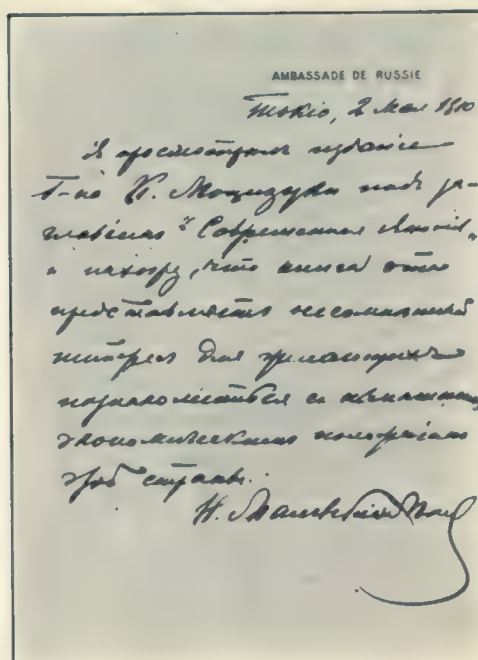 AMBASSADE DE RUSSIE
Токіо, 2 Мая 1910
Я просмотрѣлъ изданіе
Г-на К. Моцизуки подъ за-
главіемъ "Современная Японія"
и нахожу, что книга эта
представляетъ несомнѣнный
интересъ для желающихъ
познакомиться съ
экономическимъ положеніемъ
этой страны.
Н. Малевскій